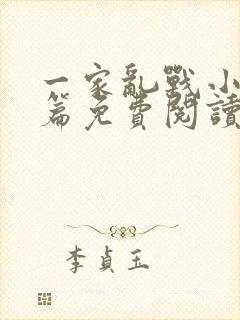 一家亂戰小
篇免費閱讀
李貞玉